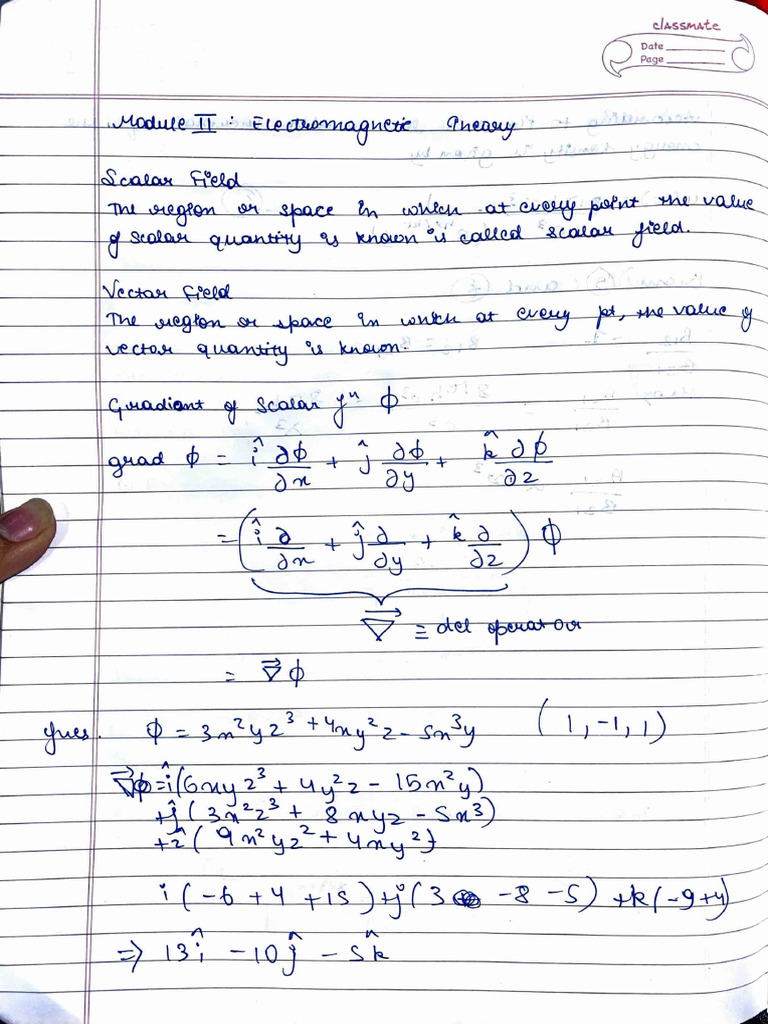 classmate
Date
Page
Module II : Electromagnetic Theory
Scalar Field
The region or space in which at every point the value
of scalar quantity is known is called scalar field.
Vector Field
The region or space in which at every pt, the value of
vector quantity is known.
Gradient of scalar fⁿ ϕ
grad ϕ = î ∂ϕ/∂x + ĵ ∂ϕ/∂y + k̂ ∂ϕ/∂z
= (î ∂/∂x + ĵ ∂/∂y + k̂ ∂/∂z) ϕ
∇⃗ ≡ del operator
= ∇⃗ϕ
Ques. ϕ = 3x²yz³ + 4xy²z - 5x³y (1, -1, 1)
∇⃗ϕ = î(6xyz³ + 4y²z - 15x²y)
+ĵ(3x²z³ + 8xyz - 5x³)
+ẑ(9x²yz² + 4xy²)
i(-6 + 4 + 15) + j(3 -8 -5) + k(-9+4)
⇒ 13î - 10ĵ - 5k̂